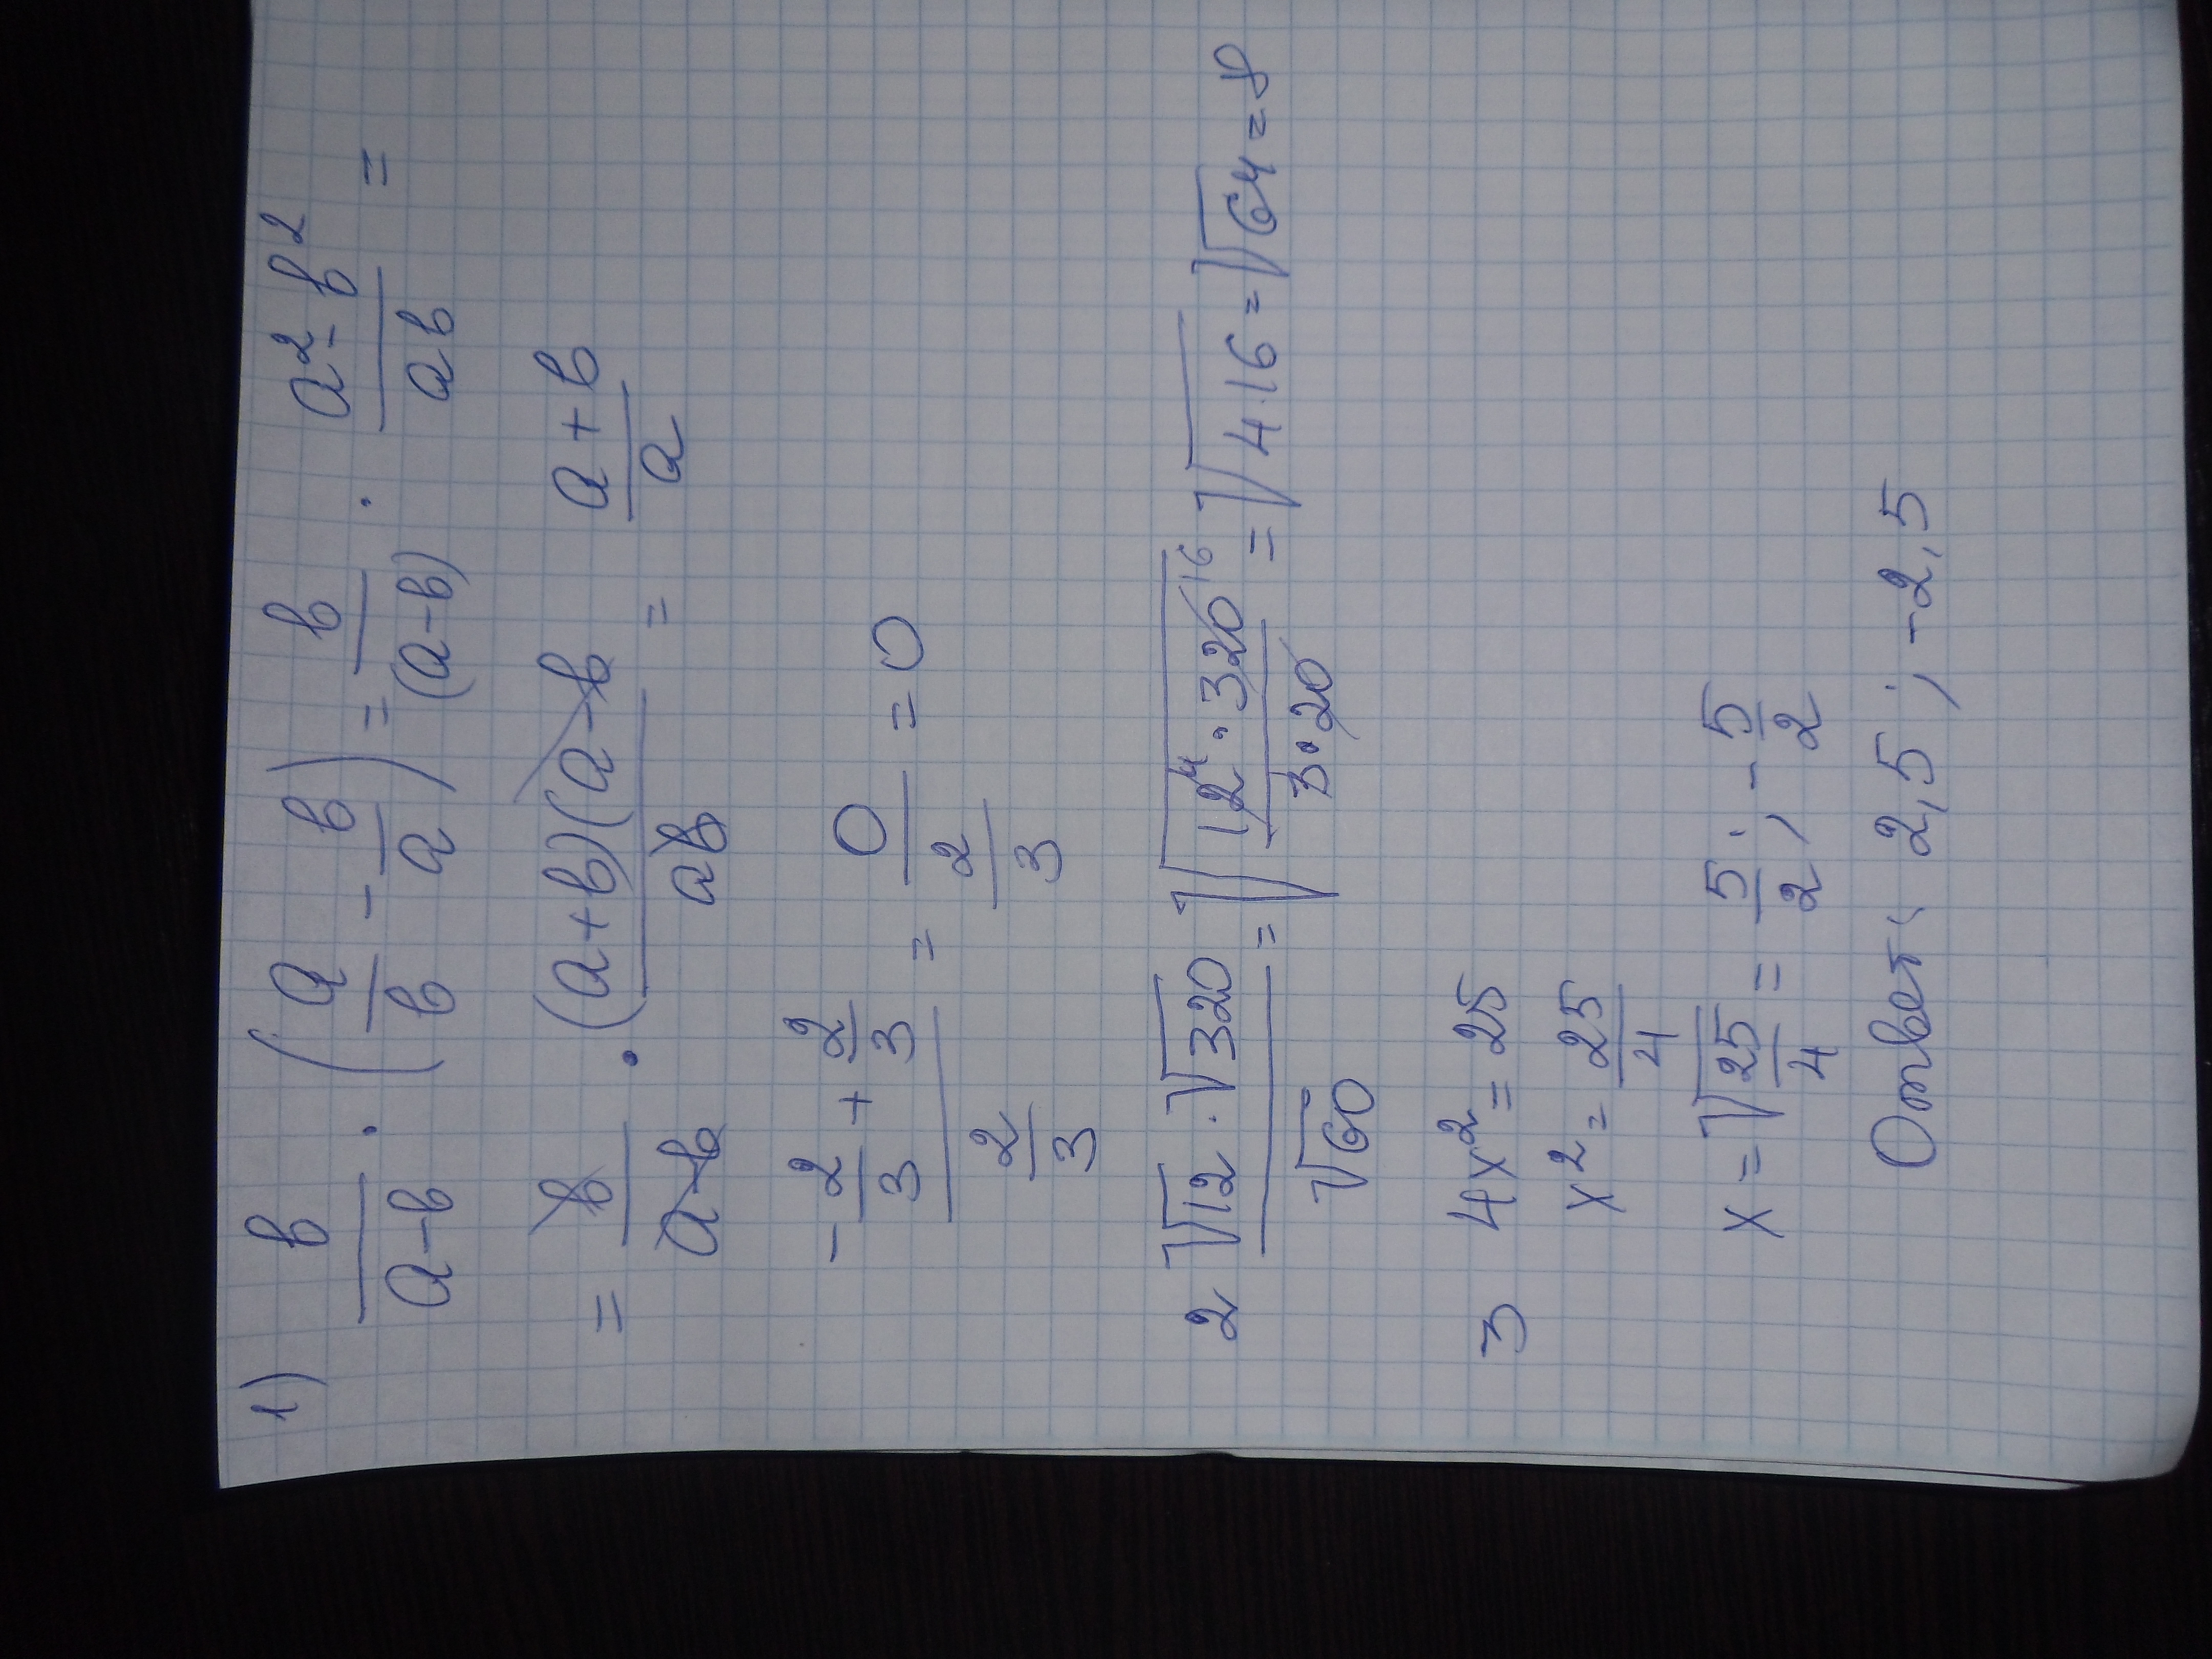 1) b/(a-b) · (a/b - b/a) = b/(a-b) · (a²-b²)/(ab) =
= b/(a-b) · (a+b)(a-b)/(ab) = (a+b)/a
(-2/3 + 2/3)/(2/3) = 0/(2/3) = 0
2 (√12 · √320)/√60 = √((12⁴ · 320¹⁶)/(3·20)) = √(4·16) = √64 = 8
3 4x² = 25
x² = 25/4
x = √(25/4) = 5/2; -5/2
Ответ: 2,5; -2,5